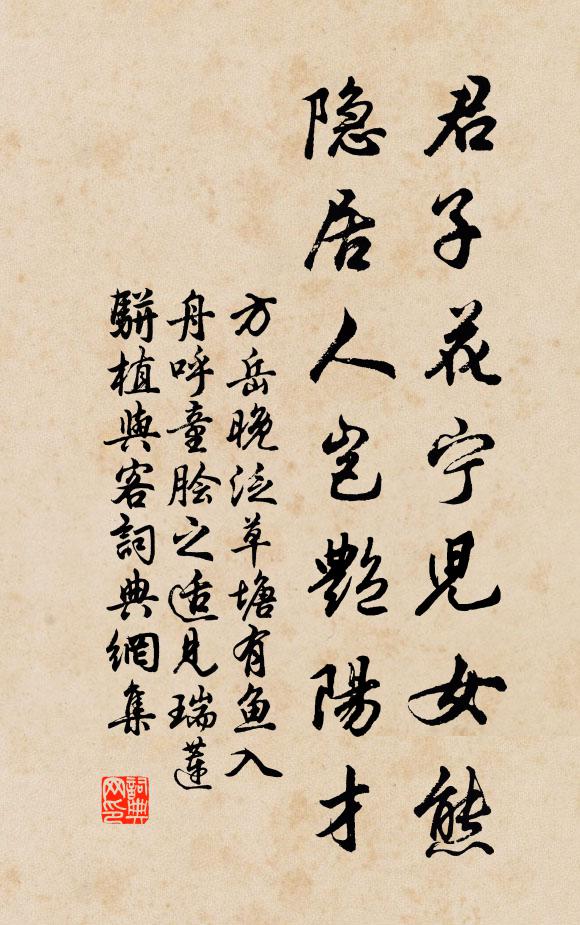 君子花宁児女熊
隐居人岂艷陽才
方岳晚泛草塘有鱼入
舟呼童脍之适见瑞蓮
駢植與客詞典網集
詞典网印